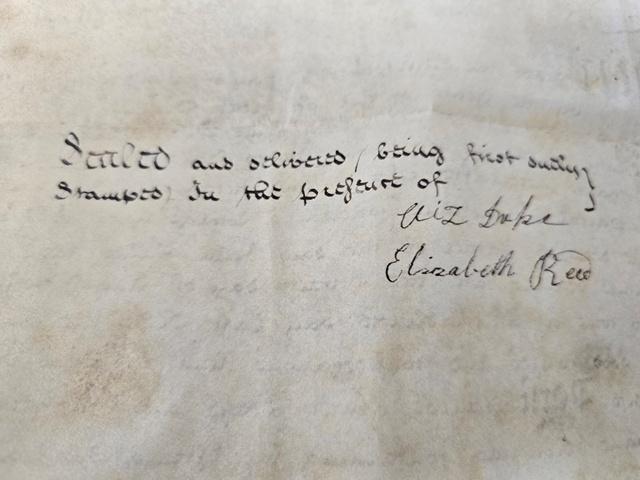 Sealed and delivered, being first duly
Stamped, In the presence of
Duke
Elizabeth Reed